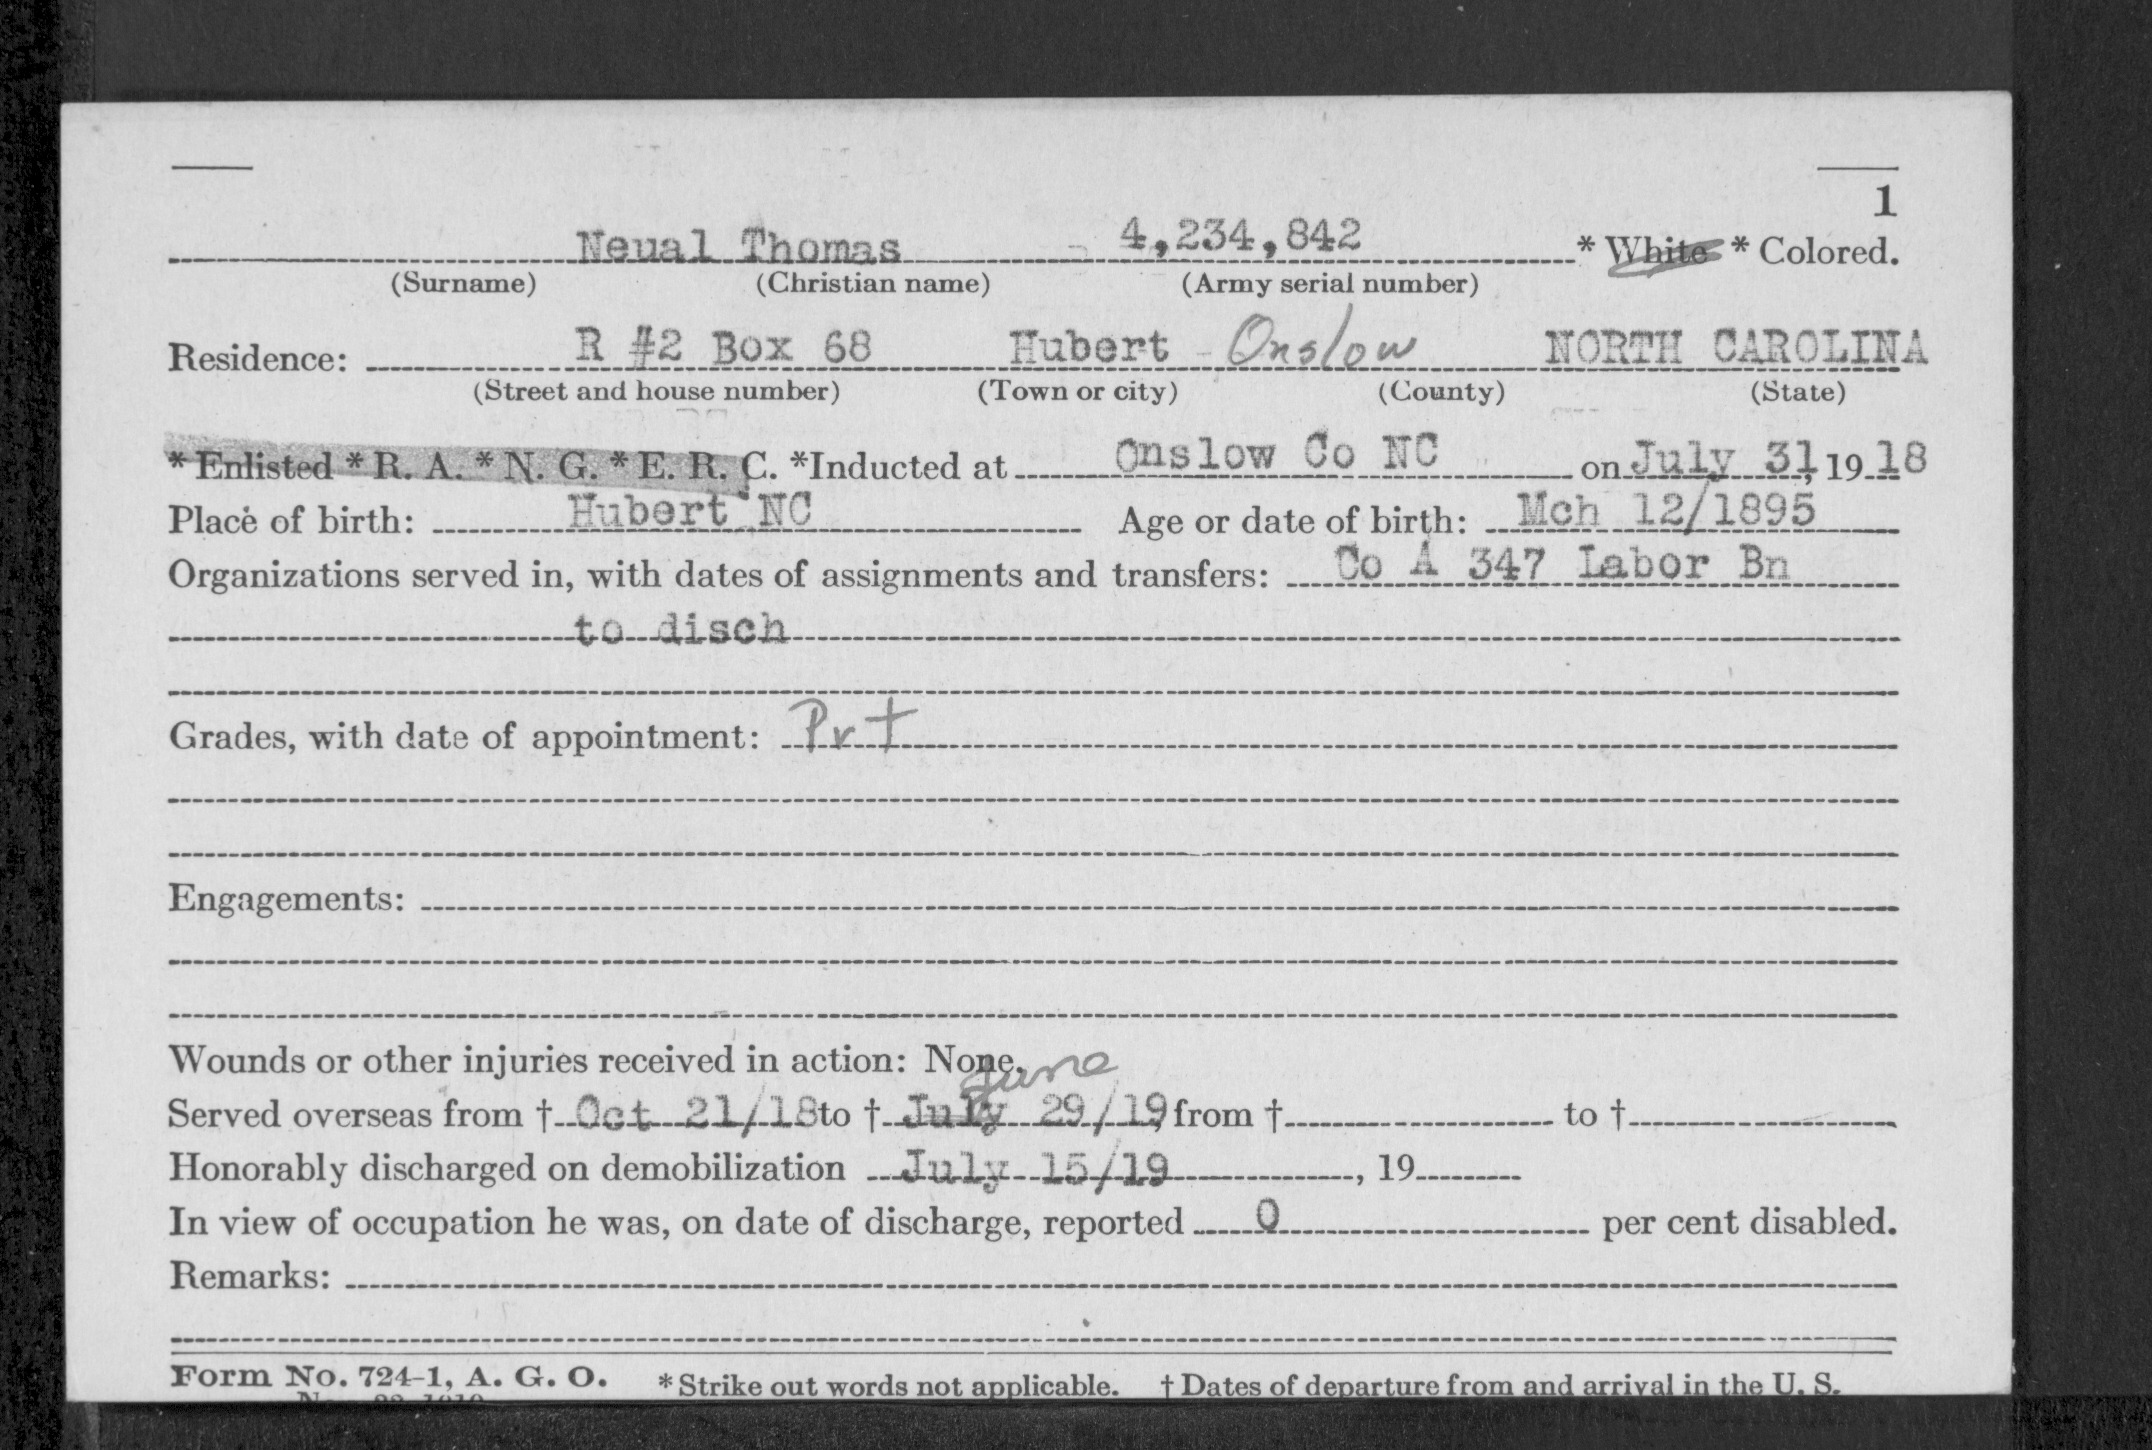 1
Neual Thomas 4,234,842 * White * Colored.
(Surname) (Christian name) (Army serial number)
Residence: R #2 Box 68 Hubert Onslow NORTH CAROLINA
(Street and house number) (Town or city) (County) (State)
* Enlisted * R. A. * N. G. * E. R. C. *Inducted at Onslow Co NC on July 31, 19 18
Place of birth: Hubert NC Age or date of birth: Mch 12/1895
Organizations served in, with dates of assignments and transfers: Co A 347 Labor Bn
to disch
Grades, with date of appointment: Pvt
Engagements:
Wounds or other injuries received in action: None.
June
Served overseas from † Oct 21/18 to † July 29/19, from † to †
Honorably discharged on demobilization July 15/19, 19
In view of occupation he was, on date of discharge, reported 0 per cent disabled.
Remarks:
Form No. 724-1, A. G. O. * Strike out words not applicable. † Dates of departure from and arrival in the U. S.